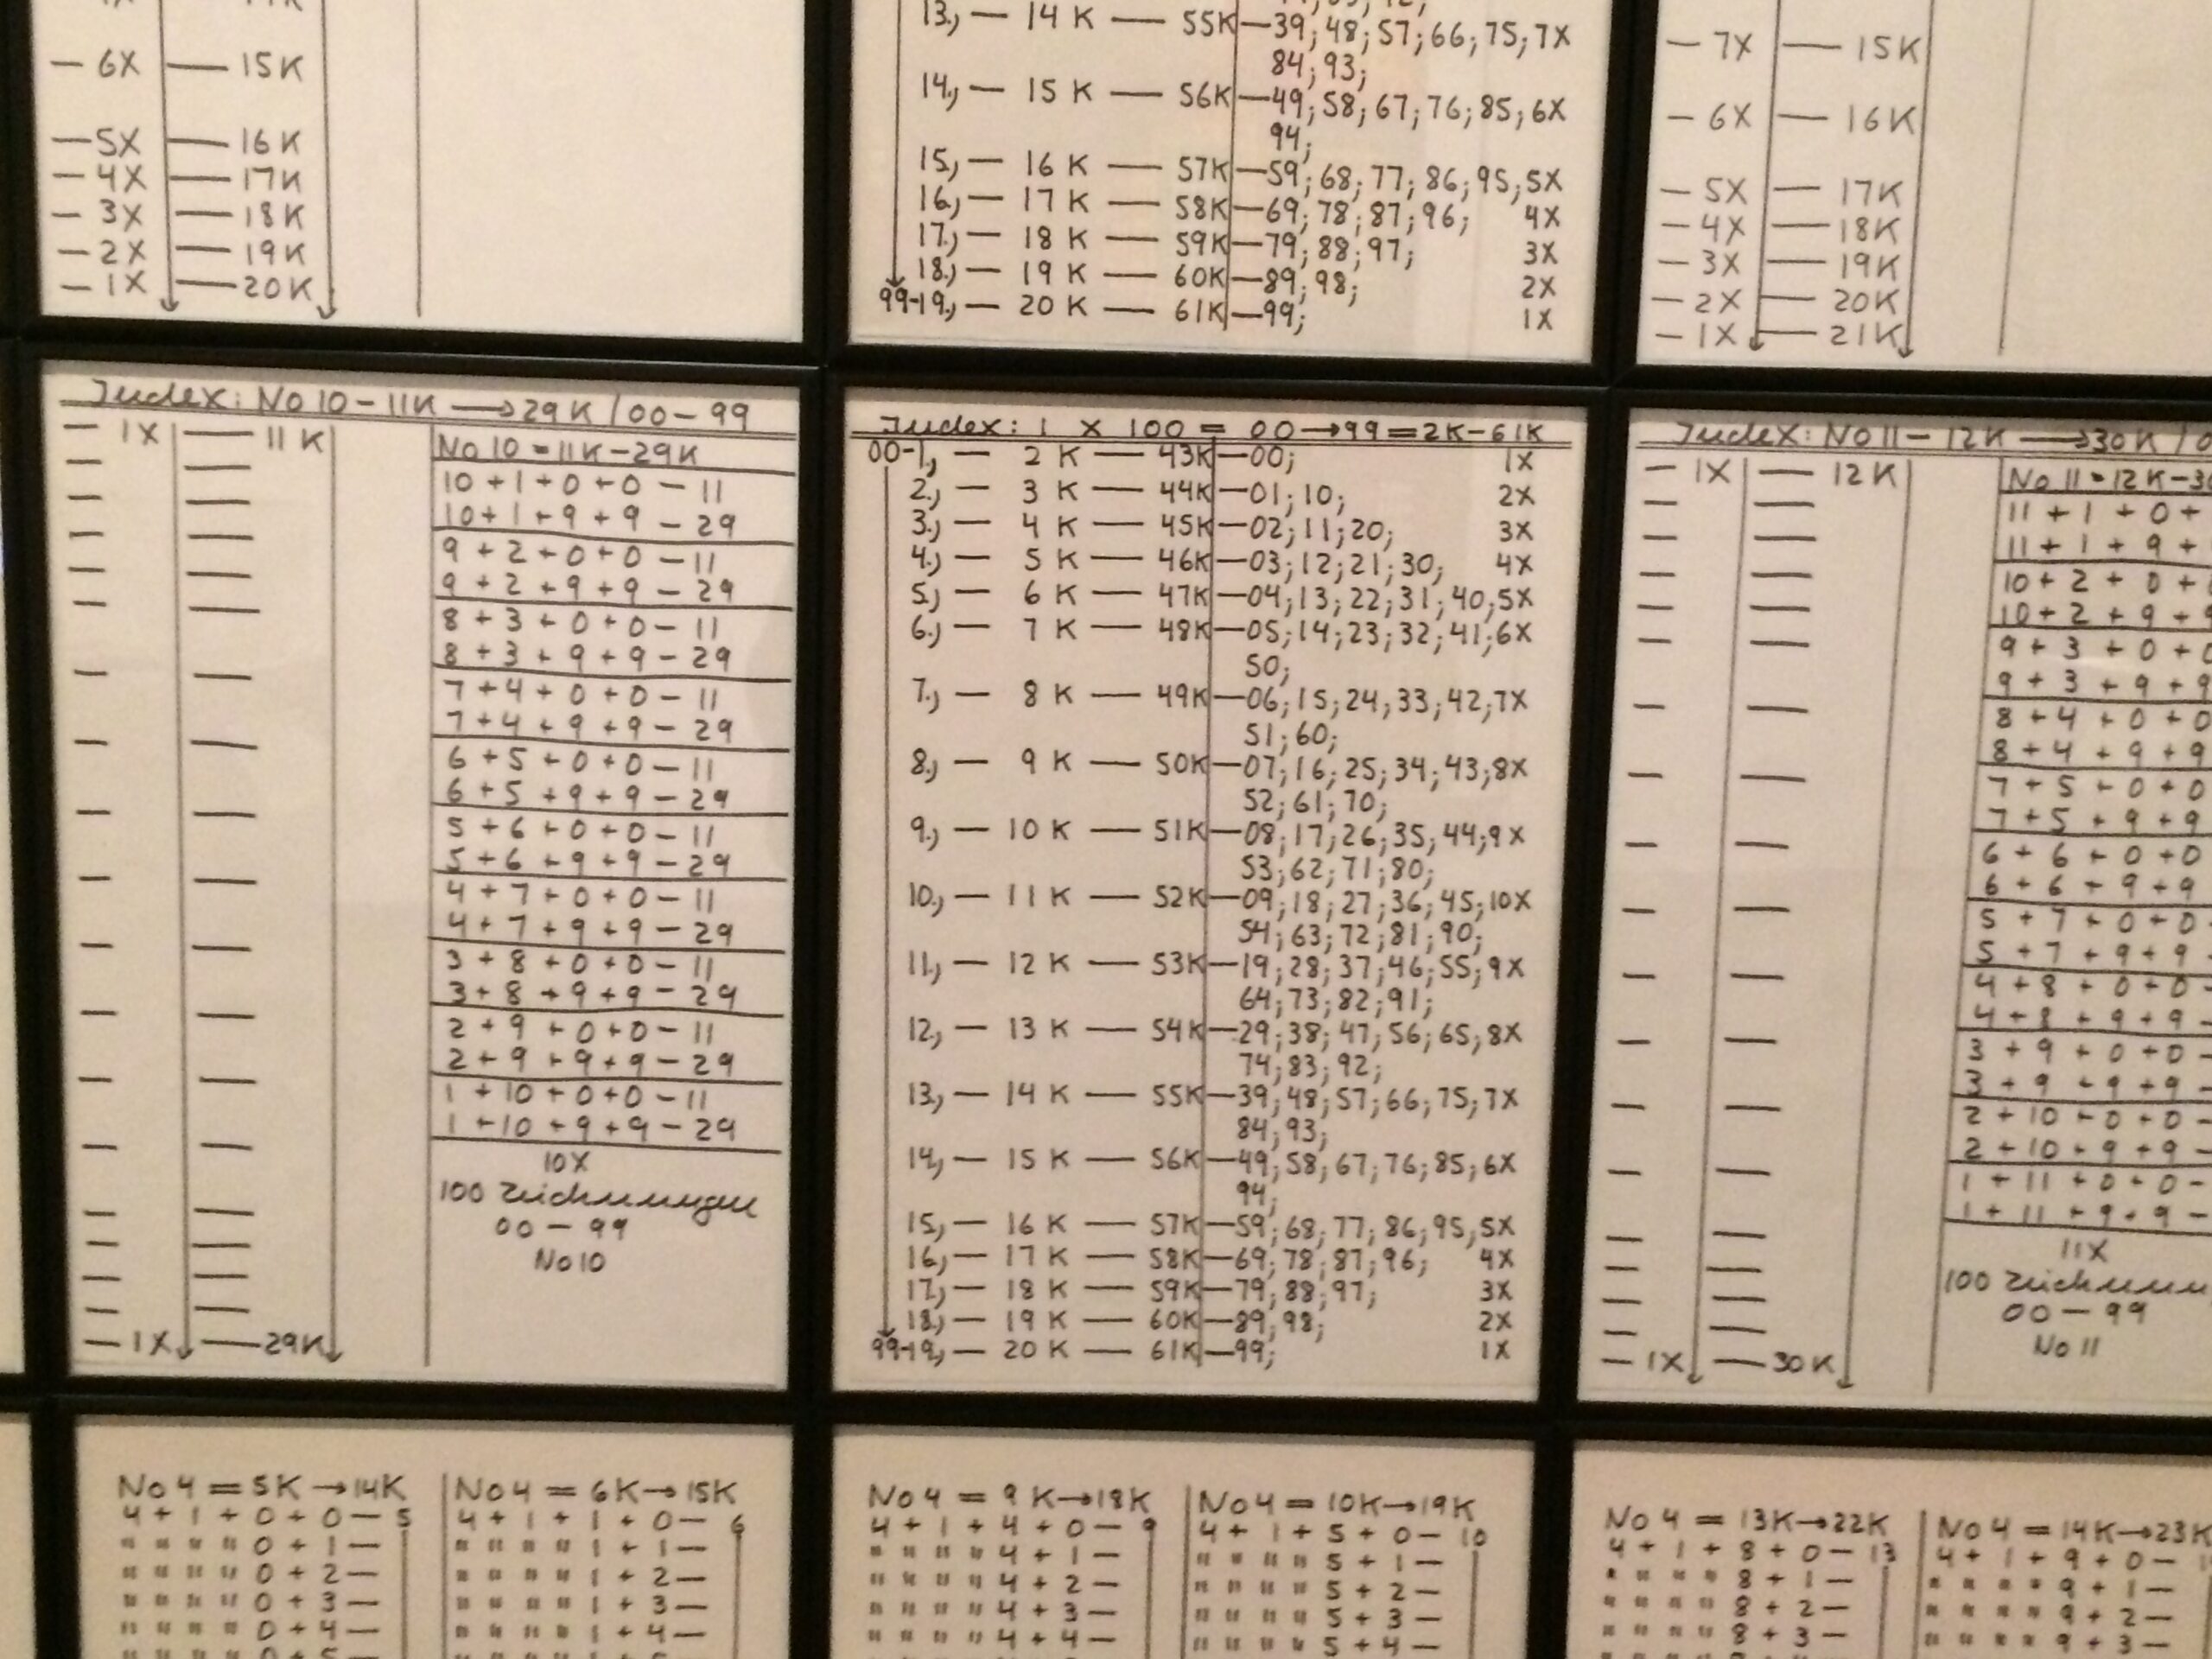 — 6X — 15K
— 5X — 16K
— 4X — 17K
— 3X — 18K
— 2X — 19K
— 1X — 20K
13.) — 14 K — 55K — 39; 48; 57; 66; 75; 7X
84; 93;
14.) — 15 K — 56K — 49; 58; 67; 76; 85; 6X
94;
15.) — 16 K — 57K — 59; 68; 77; 86; 95; 5X
16.) — 17 K — 58K — 69; 78; 87; 96; 4X
17.) — 18 K — 59K — 79; 88; 97; 3X
18.) — 19 K — 60K — 89; 98; 2X
99-19.) — 20 K — 61K — 99; 1X
— 7X — 15K
— 6X — 16K
— 5X — 17K
— 4X — 18K
— 3X — 19K
— 2X — 20K
— 1X — 21K
Index: No 10 – 11K → 29K / 00 – 99
— 1X — 11 K
— 1X — 29K
No 10 = 11K – 29K
10 + 1 + 0 + 0 – 11
10 + 1 + 9 + 9 – 29
9 + 2 + 0 + 0 – 11
9 + 2 + 9 + 9 – 29
8 + 3 + 0 + 0 – 11
8 + 3 + 9 + 9 – 29
7 + 4 + 0 + 0 – 11
7 + 4 + 9 + 9 – 29
6 + 5 + 0 + 0 – 11
6 + 5 + 9 + 9 – 29
5 + 6 + 0 + 0 – 11
5 + 6 + 9 + 9 – 29
4 + 7 + 0 + 0 – 11
4 + 7 + 9 + 9 – 29
3 + 8 + 0 + 0 – 11
3 + 8 + 9 + 9 – 29
2 + 9 + 0 + 0 – 11
2 + 9 + 9 + 9 – 29
1 + 10 + 0 + 0 – 11
1 + 10 + 9 + 9 – 29
10X
100 Zeichnungen
00 – 99
No 10
Index: 1 X 100 = 00 → 99 = 2K – 61K
00-1.) — 2 K — 43K — 00; 1X
2.) — 3 K — 44K — 01; 10; 2X
3.) — 4 K — 45K — 02; 11; 20; 3X
4.) — 5 K — 46K — 03; 12; 21; 30; 4X
5.) — 6 K — 47K — 04; 13; 22; 31; 40; 5X
6.) — 7 K — 48K — 05; 14; 23; 32; 41; 6X
50;
7.) — 8 K — 49K — 06; 15; 24; 33; 42; 7X
51; 60;
8.) — 9 K — 50K — 07; 16; 25; 34; 43; 8X
52; 61; 70;
9.) — 10 K — 51K — 08; 17; 26; 35; 44; 9X
53; 62; 71; 80;
10.) — 11 K — 52K — 09; 18; 27; 36; 45; 10X
54; 63; 72; 81; 90;
11.) — 12 K — 53K — 19; 28; 37; 46; 55; 9X
64; 73; 82; 91;
12.) — 13 K — 54K — 29; 38; 47; 56; 65; 8X
74; 83; 92;
13.) — 14 K — 55K — 39; 48; 57; 66; 75; 7X
84; 93;
14.) — 15 K — 56K — 49; 58; 67; 76; 85; 6X
94;
15.) — 16 K — 57K — 59; 68; 77; 86; 95; 5X
16.) — 17 K — 58K — 69; 78; 87; 96; 4X
17.) — 18 K — 59K — 79; 88; 97; 3X
18.) — 19 K — 60K — 89; 98; 2X
99-19.) — 20 K — 61K — 99; 1X
Index: No 11 – 12K → 30K / 0
— 1X — 12 K
— 1X — 30 K
No 11 = 12K – 30
11 + 1 + 0 +
11 + 1 + 9 +
10 + 2 + 0 +
10 + 2 + 9 + 9
9 + 3 + 0 + 0
9 + 3 + 9 + 9
8 + 4 + 0 + 0
8 + 4 + 9 + 9
7 + 5 + 0 + 0
7 + 5 + 9 + 9
6 + 6 + 0 + 0
6 + 6 + 9 + 9
5 + 7 + 0 + 0 –
5 + 7 + 9 + 9 –
4 + 8 + 0 + 0 –
4 + 8 + 9 + 9 –
3 + 9 + 0 + 0 –
3 + 9 + 9 + 9 –
2 + 10 + 0 + 0 –
2 + 10 + 9 + 9 –
1 + 11 + 0 + 0 –
1 + 11 + 9 + 9 –
11X
100 Zeichnun
00 – 99
No 11
No 4 = 5K → 14K
4 + 1 + 0 + 0 — 5
" " " " 0 + 1 —
" " " " 0 + 2 —
" " " " 0 + 3 —
" " " " 0 + 4 —
No 4 = 6K → 15K
4 + 1 + 1 + 0 — 6
" " " " 1 + 1 —
" " " " 1 + 2 —
" " " " 1 + 3 —
" " " " 1 + 4 —
No 4 = 9K → 18K
4 + 1 + 4 + 0 — 9
" " " " 4 + 1 —
" " " " 4 + 2 —
" " " " 4 + 3 —
" " " " 4 + 4 —
No 4 = 10K → 19K
4 + 1 + 5 + 0 — 10
" " " " 5 + 1 —
" " " " 5 + 2 —
" " " " 5 + 3 —
" " " " 5 + 4 —
No 4 = 13K → 22K
4 + 1 + 8 + 0 — 13
" " " " 8 + 1 —
" " " " 8 + 2 —
" " " " 8 + 3 —
No 4 = 14K → 23K
4 + 1 + 9 + 0 —
" " " " 9 + 1 —
" " " " 9 + 2 —
" " " " 9 + 3 —